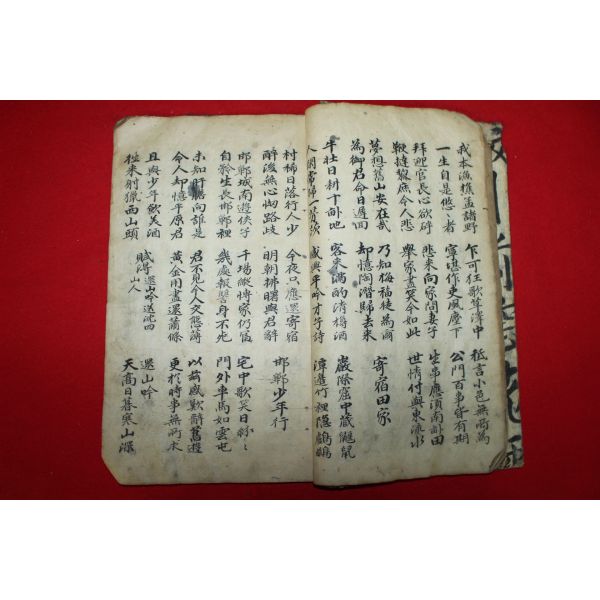 我本漁樵孟諸野
一生自是悠〻者
乍可狂歌草澤中
寧堪作吏風塵下
秪言小邑無所為
公門百事皆有期
拜迎官長心欲碎
鞭撻黎庶令人悲
悲來向家問妻子
舉家盡笑今如此
生事應須南畝田
世情付與東流水
夢想舊山安在哉
為御君命日遲迴
乃知梅福徒為爾
却憶陶潛歸去來
寄宿田家
牛壯日耕十畝地
人閑常掃一茅茨
客來滿酌清樽酒
感興平吟才子詩
巖際窟中藏鼴鼠
潭邊竹裡隱鸕鶿
村稀日落行人少
醉後無心怯路歧
今夜只應還寄宿
明朝拂曙與君辭
邯鄲少年行
邯鄲城南遊俠子
自矜生長邯鄲裡
千場縱博家仍富
幾處報讐身不死
宅中歌笑日紛〻
門外車馬如雲屯
未知肝膽向誰是
令人却憶平原君
君不見今人交態薄
黃金用盡還蕭索
以玆感歎辭舊遊
更於時事無所求
且與少年飲美酒
往來射獵西山頭
賦得還山吟送沈四山人
還山吟
天高日暮寒山深